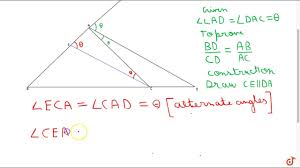 Given
∠CAD = ∠DAC = θ
To prove
BD/CD = AB/AC
Construction
Draw CE||DA
∠ECA = ∠CAD = θ [alternate angles]
∠CEA =